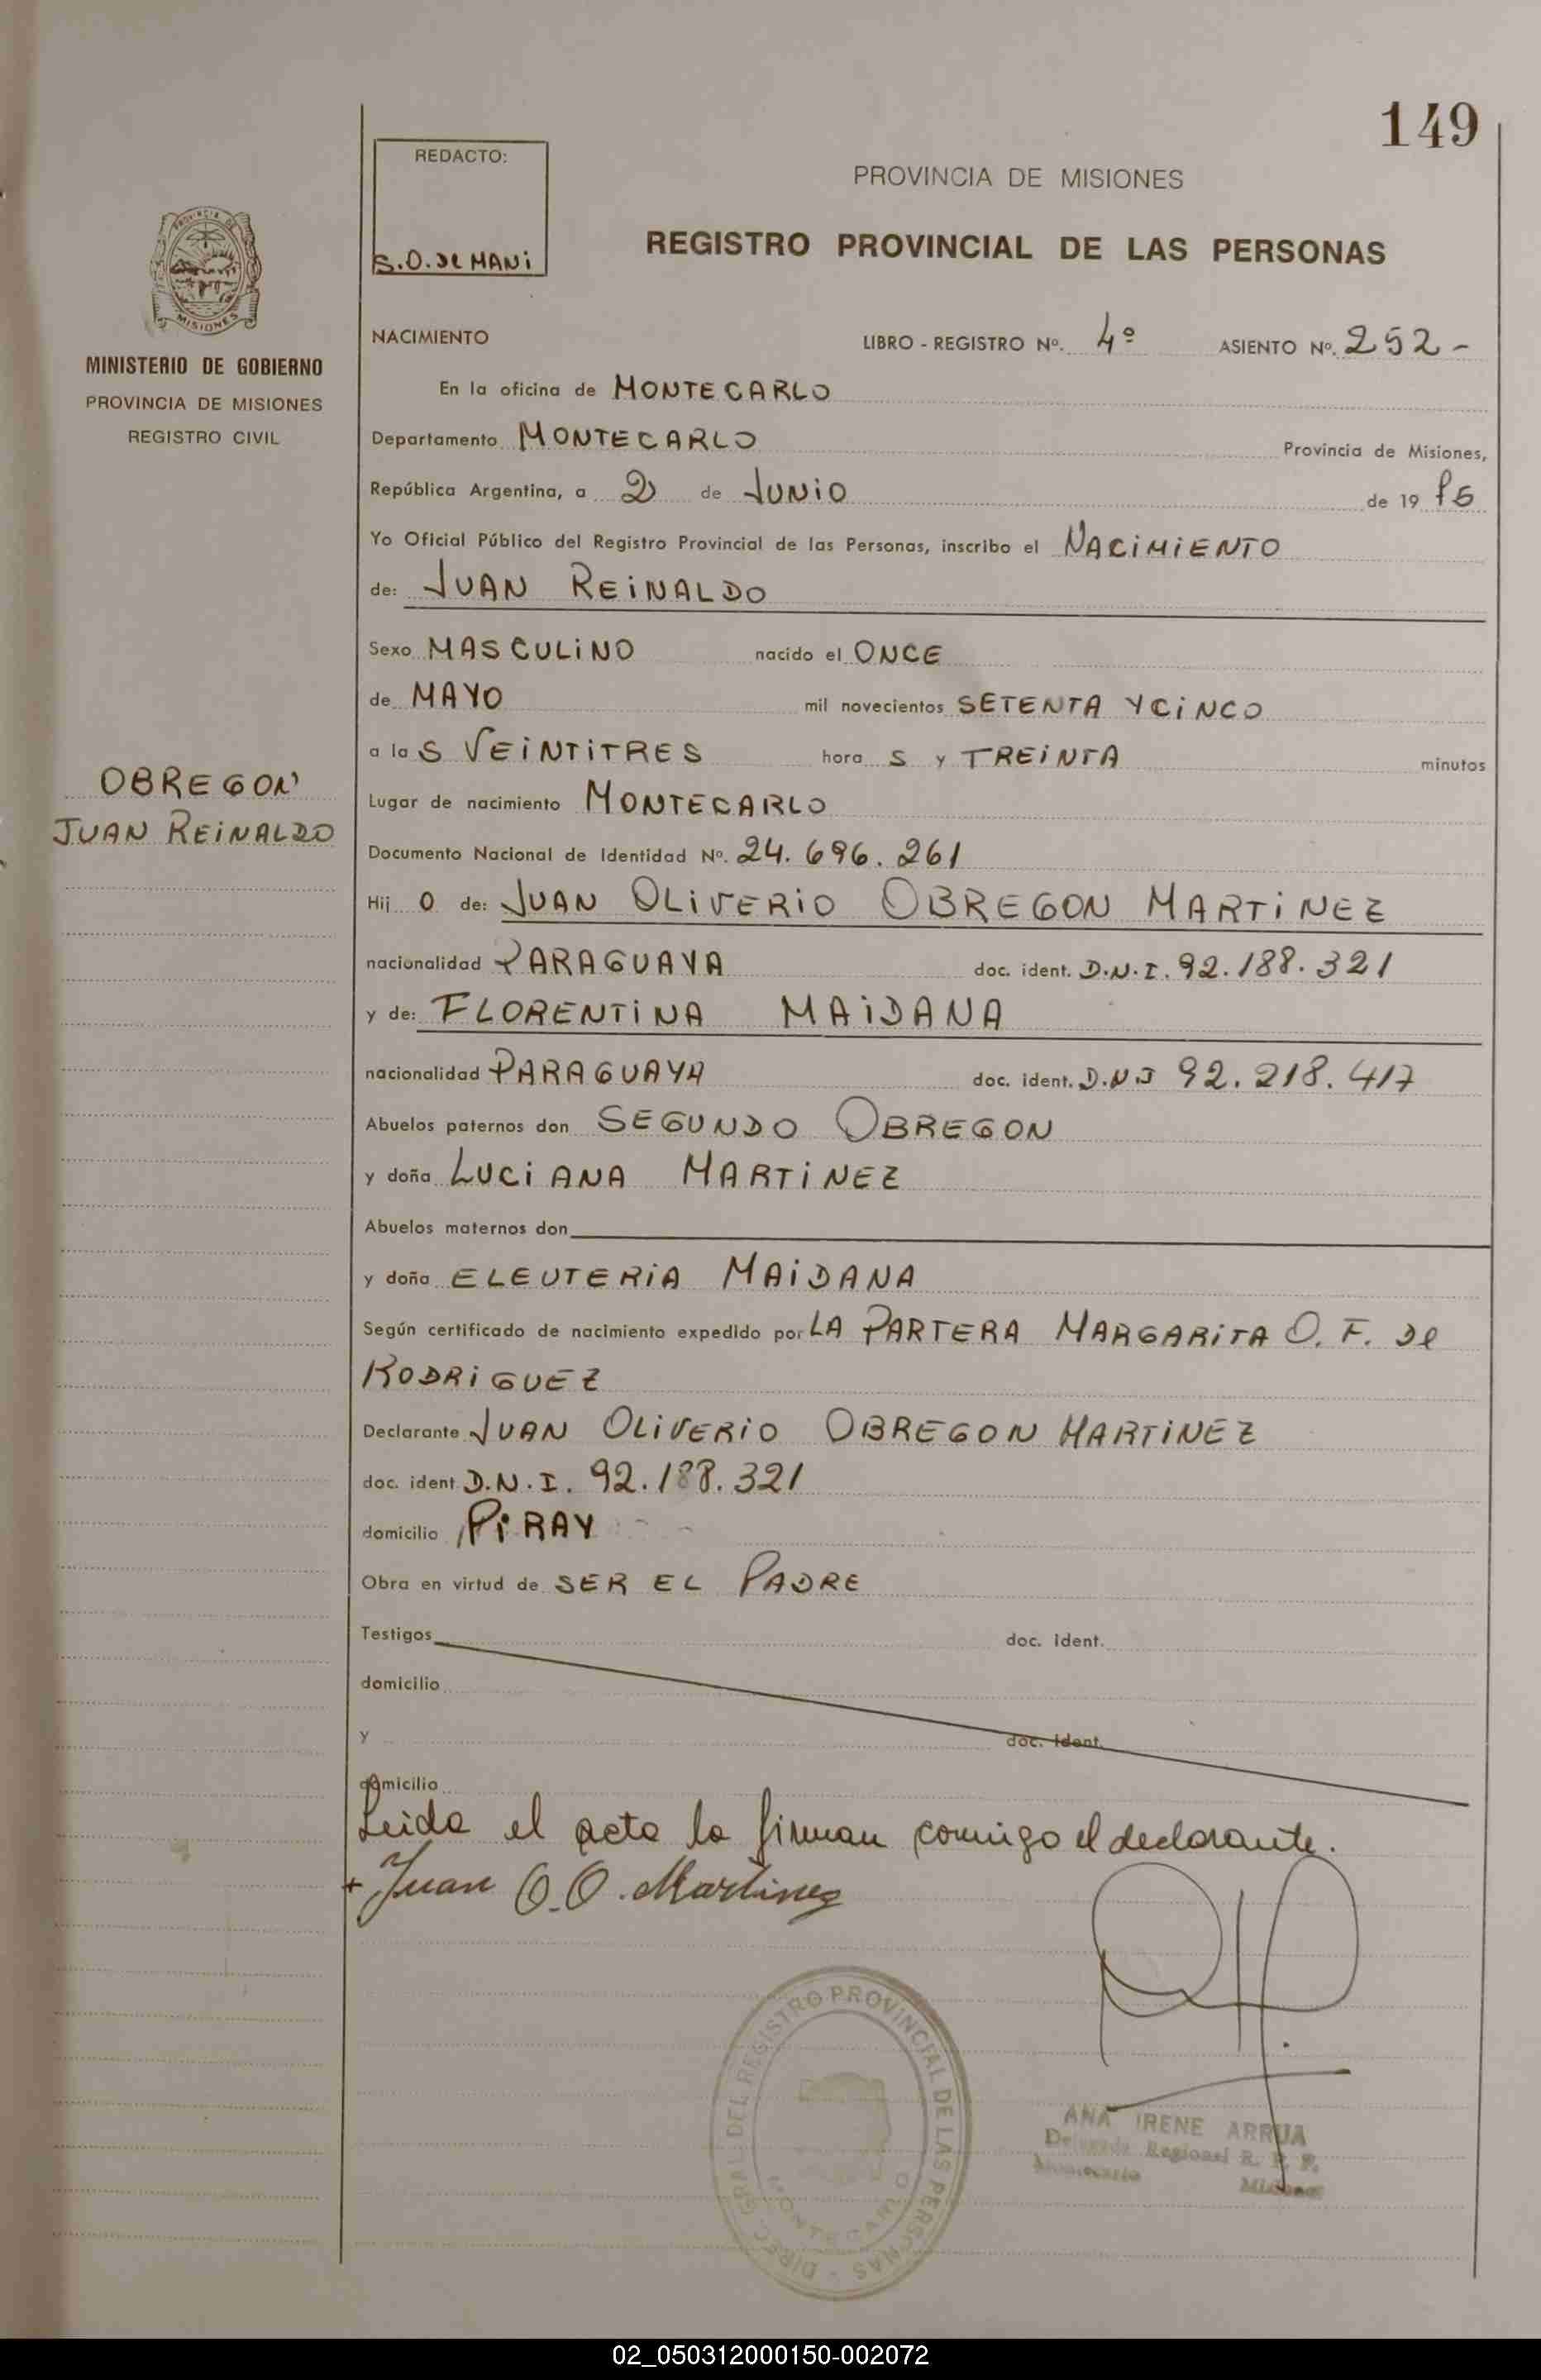 149
REDACTO:
S.O. de MANI
PROVINCIA DE MISIONES
REGISTRO PROVINCIAL DE LAS PERSONAS
PROVINCIA DE
MISIONES
MINISTERIO DE GOBIERNO
PROVINCIA DE MISIONES
REGISTRO CIVIL
NACIMIENTO LIBRO - REGISTRO Nº. 4º ASIENTO Nº. 252-
En la oficina de MONTECARLO
Departamento MONTECARLO Provincia de Misiones,
República Argentina, a 2 de JUNIO de 19
Yo Oficial Público del Registro Provincial de las Personas, inscribo el NACIMIENTO
de: JUAN REINALDO
Sexo MASCULINO nacido el ONCE
de MAYO mil novecientos SETENTA Y CINCO
a las VEINTITRES horas y TREINTA minutos
OBREGON
JUAN REINALDO
Lugar de nacimiento MONTECARLO
Documento Nacional de Identidad Nº. 24.696.261
Hijo de: JUAN OLIVERIO OBREGON MARTINEZ
nacionalidad PARAGUAYA doc. ident. D.N.I. 92.188.321
y de: FLORENTINA MAIDANA
nacionalidad PARAGUAYA doc. ident. D.N.I 92.218.417
Abuelos paternos don SEGUNDO OBREGON
y doña LUCIANA MARTINEZ
Abuelos maternos don
y doña ELEUTERIA MAIDANA
Según certificado de nacimiento expedido por LA PARTERA MARGARITA O. F. de
RODRIGUEZ
Declarante JUAN OLIVERIO OBREGON MARTINEZ
doc. ident D.N.I. 92.188.321
domicilio PIRAY
Obra en virtud de SER EL PADRE
Testigos doc. ident.
domicilio
y doc. ident.
domicilio
Leida el acta la firman conmigo el declarante.
+ Juan O.O. Martinez
DIREC. GRAL. DEL REGISTRO PROVINCIAL DE LAS PERSONAS -
MONTECARLO
ANA IRENE ARRUA
Delegada Regional R. P. P.
Montecarlo Misiones
02_050312000150-002072